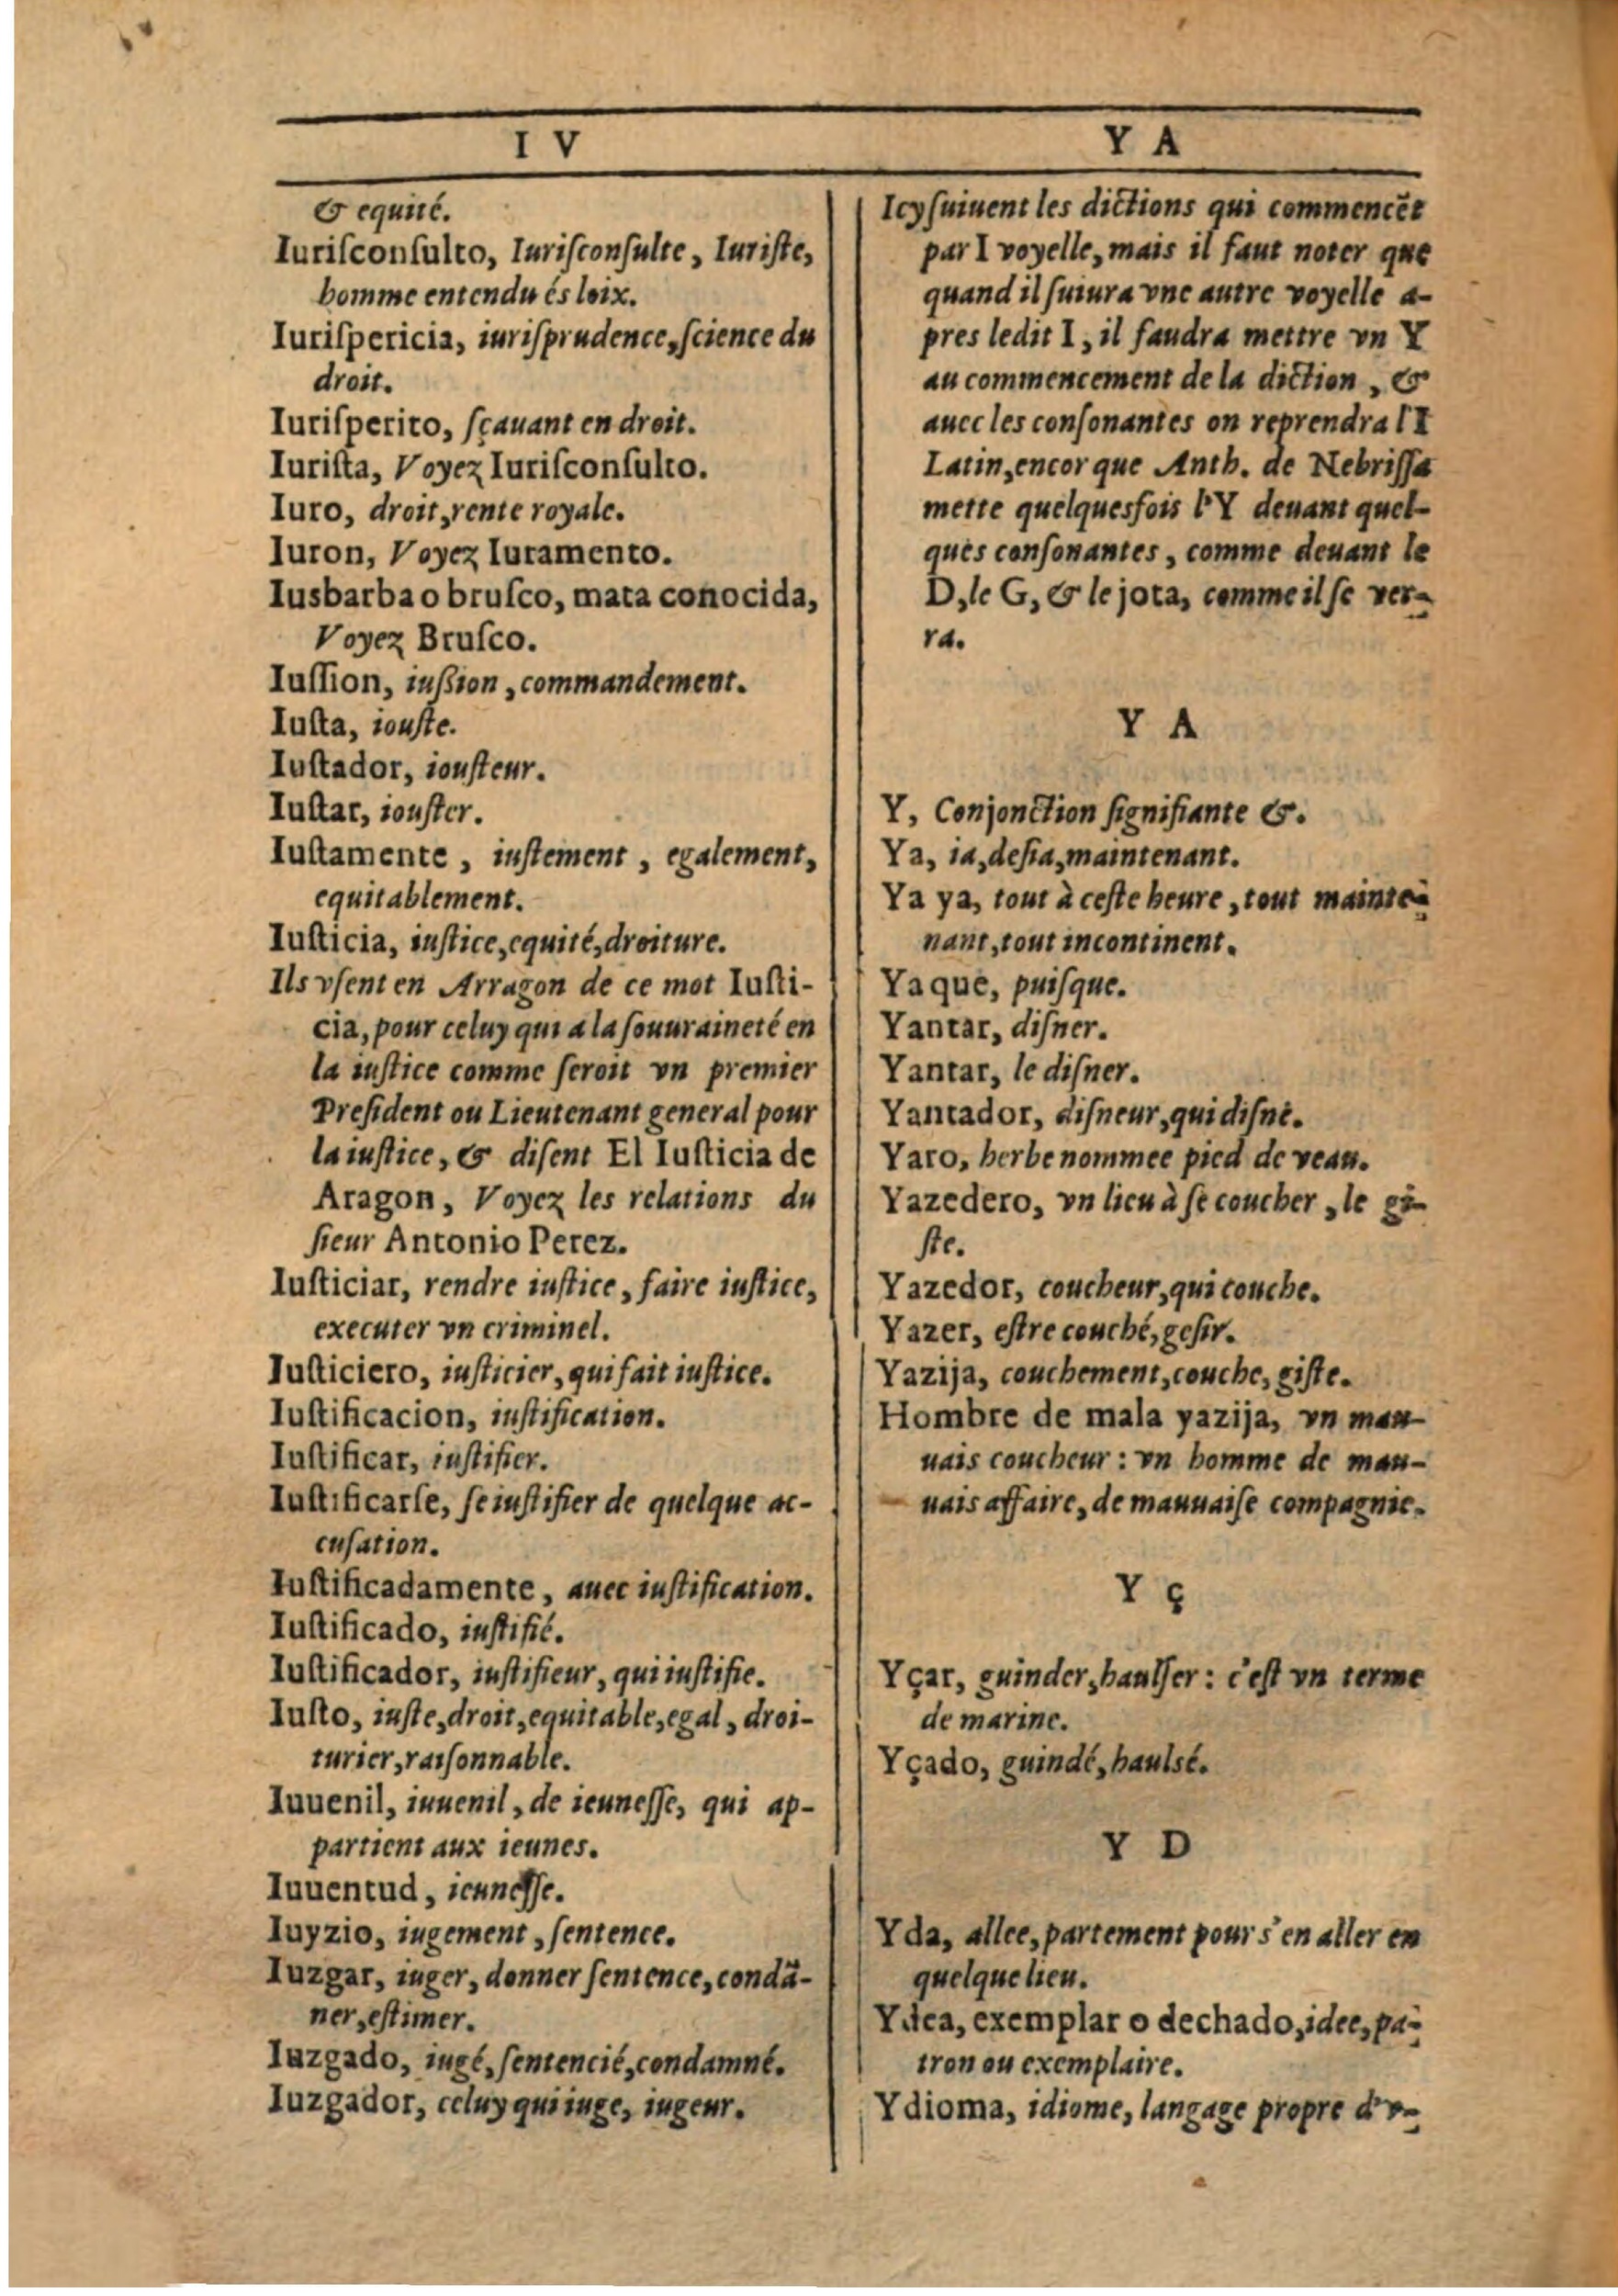 I V
& equité.
Iuriſconſulto, Iuriſconſulte, Iuriſte,
homme entendu és loix.
Iuriſpericia, iuriſprudence, ſcience du
droit.
Iuriſperito, ſçauant en droit.
Iuriſta, Voyez Iuriſconſulto.
Iuro, droit, rente royale.
Iuron, Voyez Iuramento.
Iusbarba o bruſco, mata conocida,
Voyez Bruſco.
Iuſſion, iuſsion, commandement.
Iuſta, iouſte.
Iuſtador, iouſteur.
Iuſtar, iouſter.
Iuſtamente, iuſtement, egalement,
equitablement.
Iuſticia, iuſtice, equité, droiture.
Ils vſent en Arragon de ce mot Iuſti-
cia, pour celuy qui a la ſouuraineté en
la iuſtice comme ſeroit vn premier
Preſident ou Lieutenant general pour
la iuſtice, & diſent El Iuſticia de
Aragon, Voyez les relations du
ſieur Antonio Perez.
Iuſticiar, rendre iuſtice, faire iuſtice,
executer vn criminel.
Iuſticiero, iuſticier, qui fait iuſtice.
Iuſtificacion, iuſtification.
Iuſtificar, iuſtifier.
Iuſtificarſe, ſe iuſtifier de quelque ac-
cuſation.
Iuſtificadamente, auec iuſtification.
Iuſtificado, iuſtifié.
Iuſtificador, iuſtifieur, qui iuſtifie.
Iuſto, iuſte, droit, equitable, egal, droi-
turier, raiſonnable.
Iuuenil, iuuenil, de ieuneſſe, qui ap-
partient aux ieunes.
Iuuentud, ieuneſſe.
Iuyzio, iugement, ſentence.
Iuzgar, iuger, donner ſentence, condā-
ner, eſtimer.
Iuzgado, iugé, ſentencié, condamné.
Iuzgador, celuy qui iuge, iugeur.
Y A
Icy ſuiuent les dictions qui commencēt
par I voyelle, mais il faut noter que
quand il ſuiura vne autre voyelle a-
pres ledit I, il faudra mettre vn Y
au commencement de la diction, &
auec les conſonantes on reprendra l'I
Latin, encor que Anth. de Nebriſſa
mette quelquesfois l'Y deuant quel-
ques conſonantes, comme deuant le
D, le G, & le jota, comme il ſe ver-
ra.
Y A
Y, Conjonction ſignifiante &.
Ya, ia, deſia, maintenant.
Ya ya, tout à ceſte heure, tout mainte-
nant, tout incontinent.
Ya que, puiſque.
Yantar, diſner.
Yantar, le diſner.
Yantador, diſneur, qui diſne.
Yaro, herbe nommee pied de veau.
Yazedero, vn lieu à ſe coucher, le gi-
ſte.
Yazedor, coucheur, qui couche.
Yazer, eſtre couché, geſir.
Yazija, couchement, couche, giſte.
Hombre de mala yazija, vn mau-
uais coucheur : vn homme de mau-
uais affaire, de mauuaiſe compagnie.
Y ç
Yçar, guinder, haulſer : c'eſt vn terme
de marine.
Yçado, guindé, haulsé.
Y D
Yda, allee, partement pour s'en aller en
quelque lieu.
Ydea, exemplar o dechado, idee, pa-
tron ou exemplaire.
Ydioma, idiome, langage propre d'v-